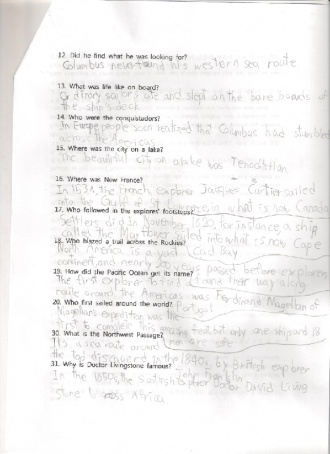 12. Did he find what he was looking for?
Columbus never found his western sea route
13. What was life like on board?
Ordinary sailors ate and slept on the bare boards of
the ship's deck
14. Who were the conquistadors?
In Europe people soon realized that Columbus had stumbled
across the Americas
15. Where was the city on a lake?
The beautiful city on a lake was Tenochtitlan
16. Where was New France?
In 1534, the French explorer Jacques Cartier sailed
into the Gulf of St in what is now Canada
17. Who followed in the explorers' footsteps?
Settlers did in November 1620, for instance, a ship
called the Mayflower sailed into what is now Cape
18. Who blazed a trail across the Rockies? Cod Bay
North America is a vast
continent and nearly passed before explorers
19. How did the Pacific Ocean get its name?
The first explorer to find their way along
route around the Americas was Ferdinand Magellan of
20. Who first sailed around the world? Portugal
Magellan's expedition was the
first to complete amazing feat but only one ship and 18
30. What is the Northwest Passage? men are safe
It's a sea route around
the top discovered in the 1840s by British explorer
31. Why is Doctor Livingstone famous? John Franklin
In the 1850s, the Scottish explorer Doctor David Living
stone across Africa